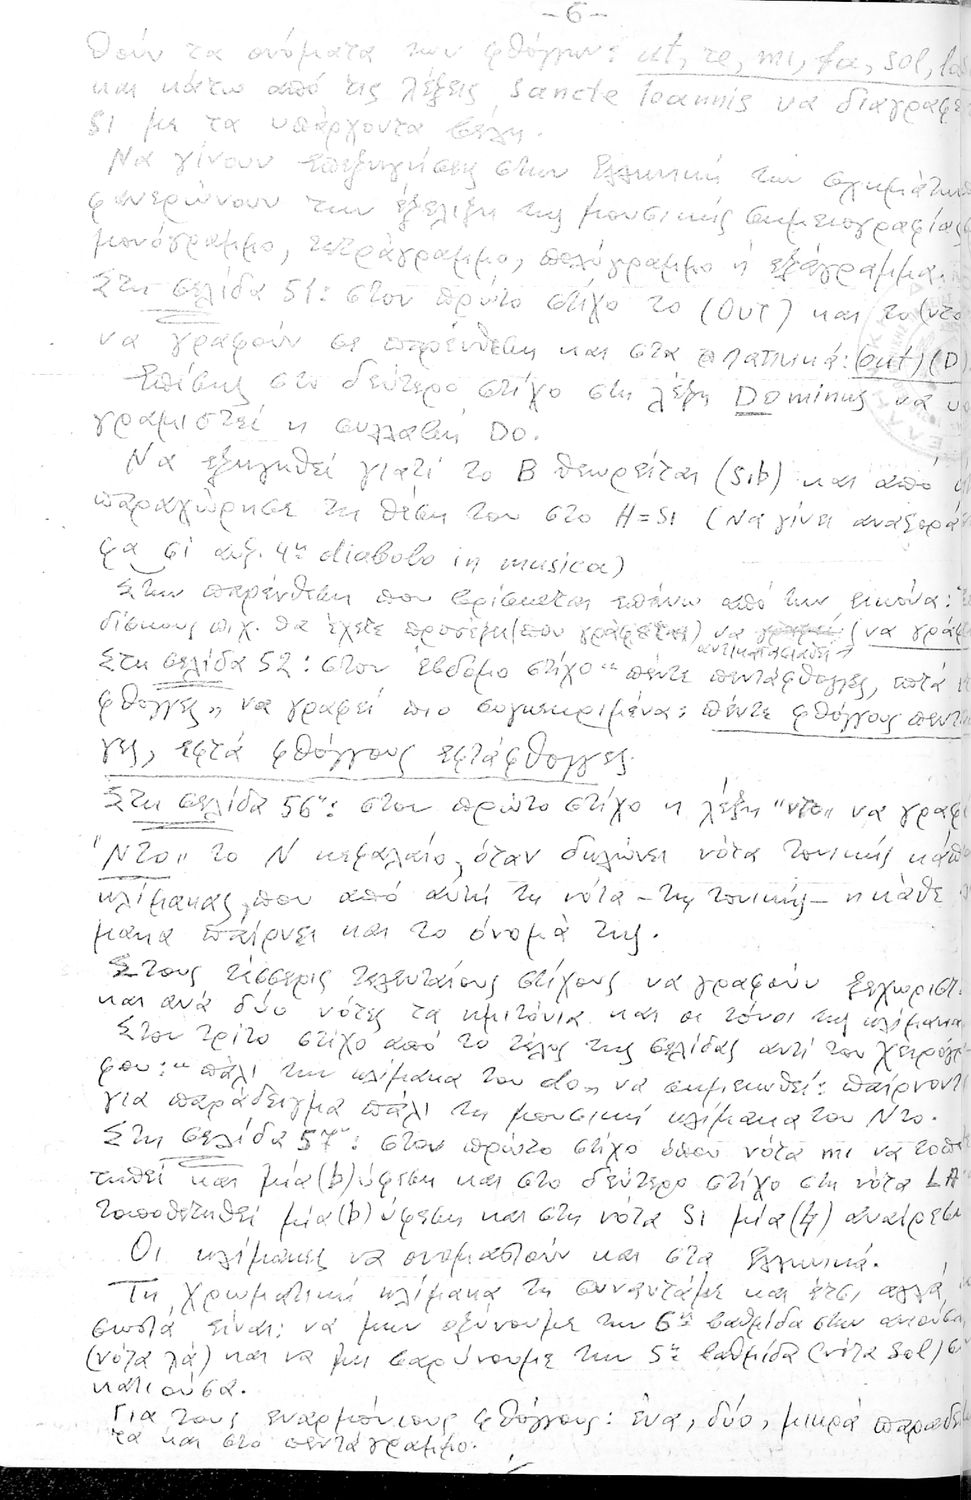 -6-
θούν τα ονόματα των φθόγγων: ut, re, mi, fa, sol, la
και κάτω από τις λέξεις Sancte Ioannis να διαγραφε
si με τα υπάρχοντα μέλη.
Να γίνουν επεξηγήσεις στην Ελληνική των σχημάτων
φανερώνουν την εξέλιξη της μουσικής σημειογραφίας
μονόγραμμο, τετράγραμμο, πολύγραμμο ή εξάγραμμα.
Στη σελίδα 51: στον πρώτο στίχο το (Out) και το (ντο
να γραφούν σε παρένθεση και στα λατινικά: (out) (D)
Επίσης στο δεύτερο στίχο στη λέξη Dominus να υ
γραμιστεί η συλλαβή Do.
Να εξηγηθεί γιατί το B θεωρείται (sib) και από
παραχώρησε τη θέση του στο H=si (Να γίνει αναφορά
φα σι αυξ. 4η diabolo in musica)
Στην παρένθεση που βρίσκεται επάνω από την εικόνα:
δίσκους π.χ. θα έχετε προσέξει (που γράφεται) να (να γράφ
αντικατασταθή
Στη σελίδα 52: στον έβδομο στίχο "πέντε πεντάφθογγες, επτά
φθογγες" να γραφεί πιο συγκεκριμένα: πέντε φθόγγους πεντ
γες, εφτά φθόγγους εφτάφθογγες.
Στη σελίδα 56": στον πρώτο στίχο η λέξη "ντο" να γραφ
"Ντο" το Ν κεφαλαίο, όταν δηλώνει νότα τονικής κάπ
κλίμακας, που από αυτή τη νότα - της τονικής - η κάθε
μακα παίρνει και το όνομά της.
Στους τέσσερις τελευταίους στίχους να γραφούν ξεχωριστ
και ανά δύο νότες τα ημιτόνια και οι τόνοι της κλίμακα
Στον τρίτο στίχο από το τέλος της σελίδας αντί του χειρόγρ
φου: "πάλι την κλίμακα του do" να σημειωθεί: παίρνοντ
για παράδειγμα πάλι τη μουσική κλίμακα του Ντο.
Στη σελίδα 57": στον πρώτο στίχο όπου νότα mi να τοπο
τηθεί και μία (b) ύφεση και στο δεύτερο στίχο στη νότα LA
τοποθετηθεί μία (b) ύφεση και στη νότα Si μία (♮) αναίρεσ
Οι κλίμακες να ονομαστούν και στα Ελληνικά.
Τη χρωματική κλίμακα τη συναντάμε και έτσι, αλλά
σωστά είναι: να μην οξύνουμε την 6η βαθμίδα στην ανιούσα,
(νότα λά) και να μη βαρύνουμε την 5η βαθμίδα (νότα Sol) σ
κατιούσα.
Για τους εναρμόνιους φθόγγους: ένα, δύο, μικρά παραδεί
τα και στο πεντάγραμμο.